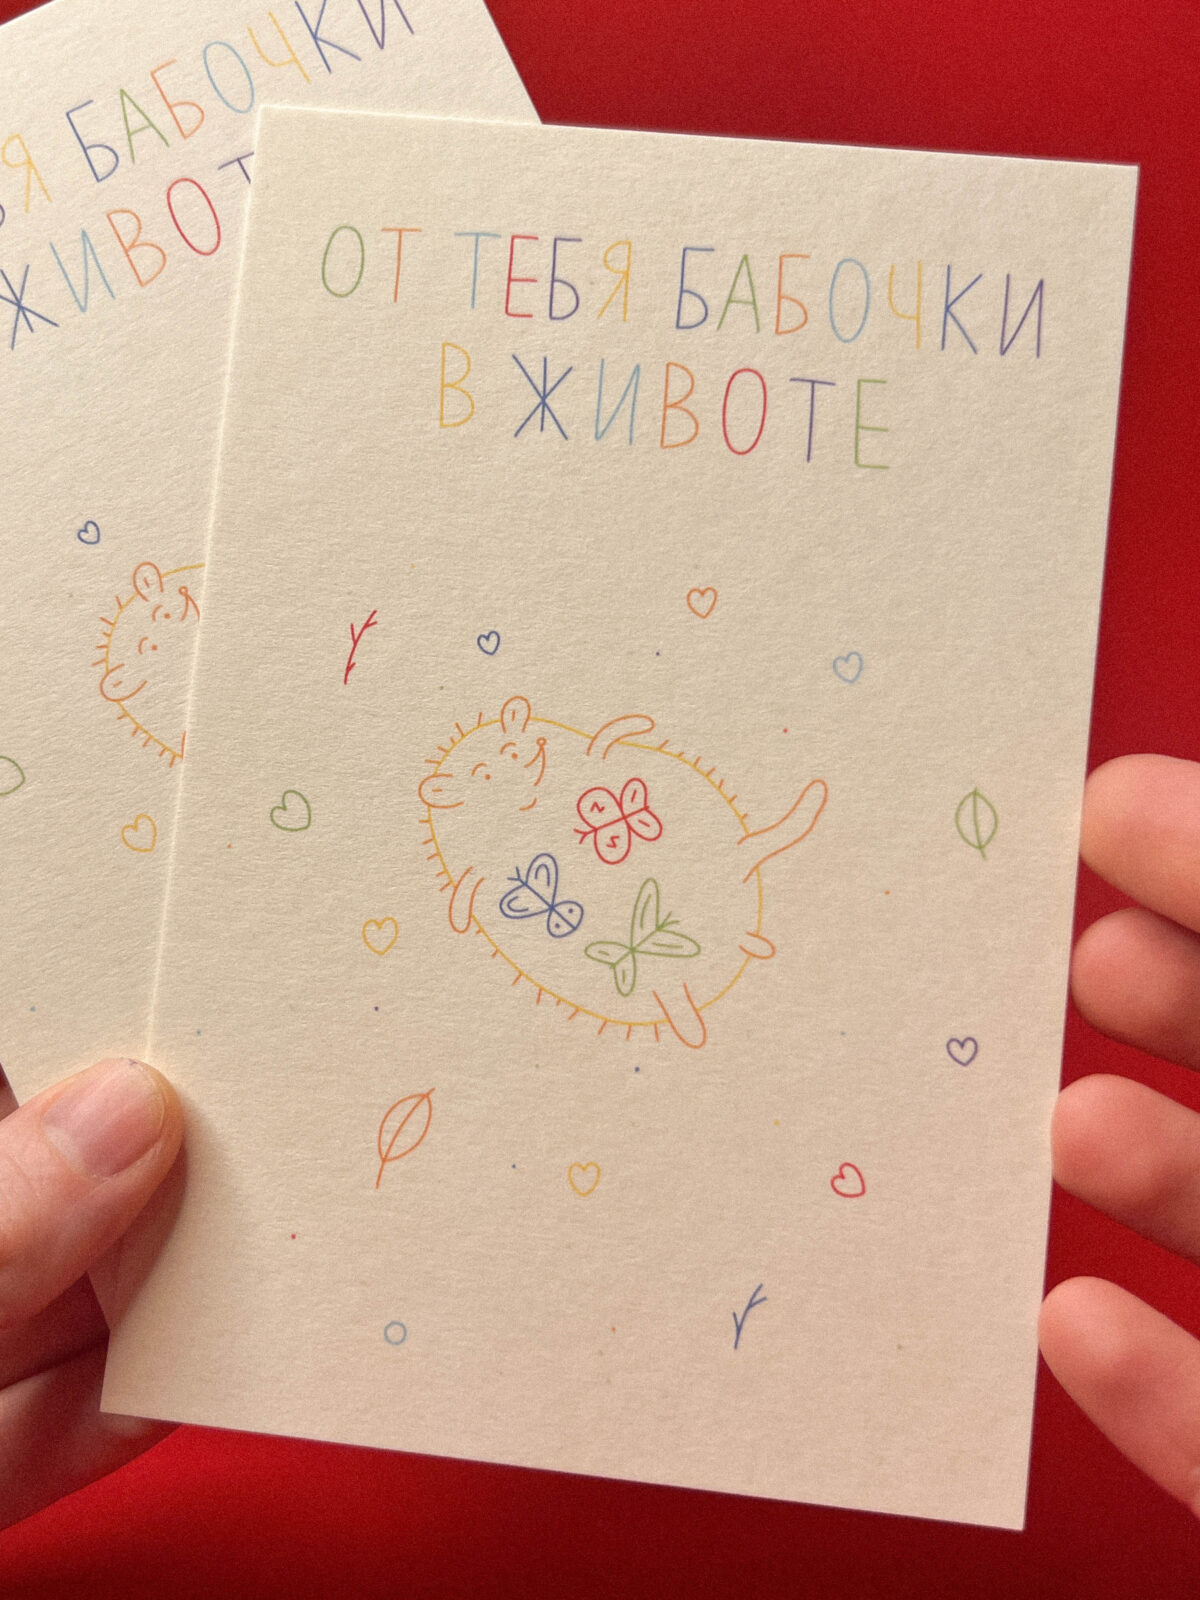 Я БАБОЧКИ
ЖИВОТ
ОТ ТЕБЯ БАБОЧКИ
В ЖИВОТЕ